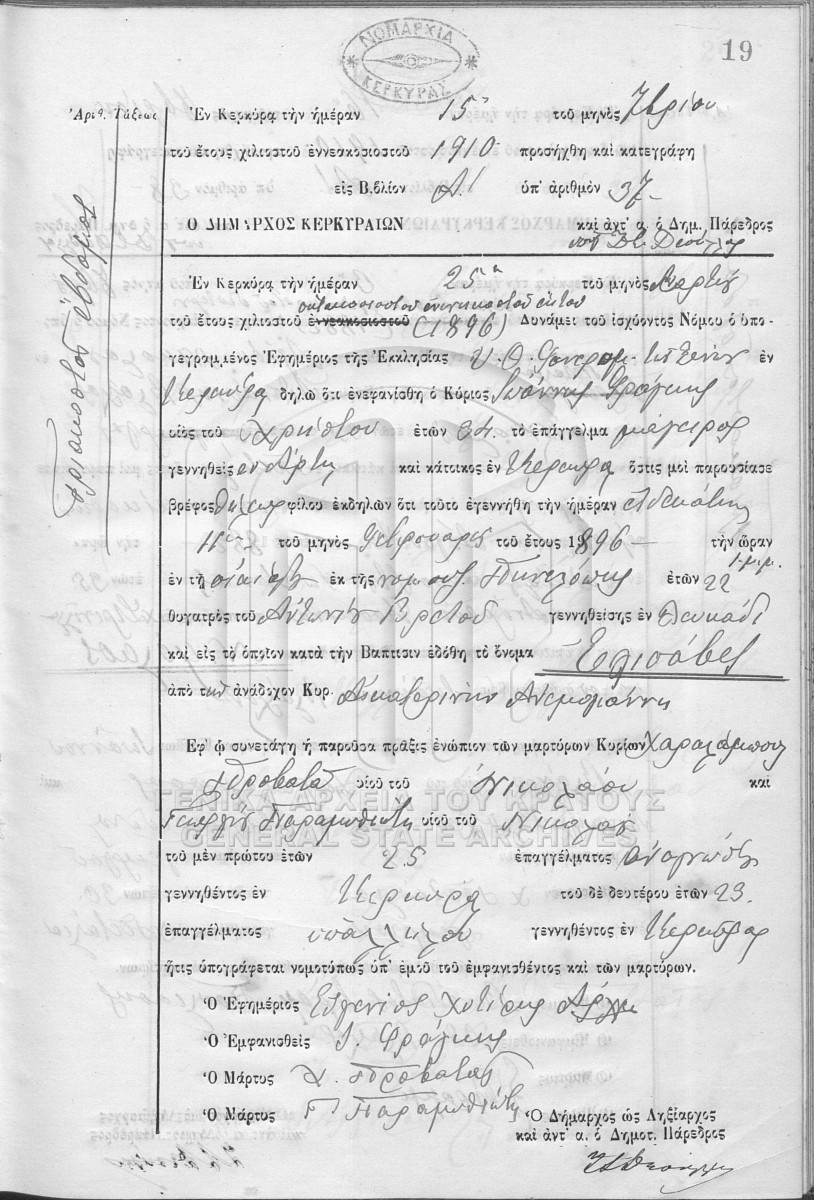 ΝΟΜΑΡΧΙΑ
ΚΕΡΚΥΡΑΣ
19
Ἀριθ. Τάξεως
τριακοστὸν ἕβδομος
Ἐν Κερκύρᾳ τὴν ἡμέραν 15 τοῦ μηνὸς 7βρίου
τοῦ ἔτους χιλιοστοῦ ἐννεακοσιοστοῦ 1910 προσήχθη καὶ κατεγράφη
εἰς Βιβλίον Α! ὑπ' ἀριθμὸν 37
Ο ΔΗΜΑΡΧΟΣ ΚΕΡΚΥΡΑΙΩΝ καὶ ἀντ' α. ὁ Δημ. Πάρεδρος
Ἐν Κερκύρᾳ τὴν ἡμέραν 25η τοῦ μηνὸς Μαρτίου
ὀκτακοσιοστοῦ ἐνενηκοστοῦ ἕκτου
τοῦ ἔτους χιλιοστοῦ ἐννεακοσιοστοῦ (1896) Δυνάμει τοῦ ἰσχύοντος Νόμου ὁ ὑπο-
γεγραμμένος Ἐφημέριος τῆς Ἐκκλησίας Υ. Θ. ἐν
Κερκύρᾳ δηλῶ ὅτι ἐνεφανίσθη ὁ Κύριος Ἰωάννης Φράγκης
υἱὸς τοῦ Χρήστου ἐτῶν 34. τὸ ἐπάγγελμα μάγειρος
γεννηθεὶς ἐν Ἄρτῃ καὶ κάτοικος ἐν Κερκύρᾳ ὅστις μοὶ παρουσίασε
βρέφος θήλεος φίλου ἐκδηλῶν ὅτι τοῦτο ἐγεννήθη τὴν ἡμέραν ἑνδεκάτην
11 τοῦ μηνὸς Φεβρουαρίου τοῦ ἔτους 1896 τὴν ὥραν
1 μ.μ.
ἐν τῇ οἰκίᾳ ἐκ τῆς νομ. συζ. Πηνελόπης ἐτῶν 22
θυγατρὸς τοῦ Ἀντωνίου Βρεττοῦ γεννηθείσης ἐν Λευκάδι
καὶ εἰς τὸ ὁποῖον κατὰ τὴν Βάπτισιν ἐδόθη τὸ ὄνομα Ἐλισάβετ
ἀπὸ τὴν ἀνάδοχον Κυρ. Αἰκατερίνην Ἀνεμογιάννη
Ἐφ' ᾧ συνετάγη ἡ παροῦσα πρᾶξις ἐνώπιον τῶν μαρτύρων Κυρίων Χαραλάμπους
Προβατᾶ υἱοῦ τοῦ Νικολάου καὶ
Γεωργίου Παραμυθιώτη υἱοῦ τοῦ Νικολάου
ΓΕΝΙΚΑ ΑΡΧΕΙΑ ΤΟΥ ΚΡΑΤΟΥΣ
GENERAL STATE ARCHIVES
τοῦ μὲν πρώτου ἐτῶν 25 ἐπαγγέλματος ἀναγνώστου
γεννηθέντος ἐν Κερκύρᾳ τοῦ δὲ δευτέρου ἐτῶν 23.
ἐπαγγέλματος ὑπαλλήλου γεννηθέντος ἐν Κερκύρᾳ
ἥτις ὑπογράφεται νομοτύπως ὑπ' ἐμοῦ τοῦ ἐμφανισθέντος καὶ τῶν μαρτύρων.
Ὁ Ἐφημέριος Εὐγένιος Χυτίρης
Ὁ Ἐμφανισθεὶς Ι. Φράγκης
Ὁ Μάρτυς Χ. Προβατᾶς
Ὁ Μάρτυς Γ. Παραμυθιώτης
Ὁ Δήμαρχος ὡς Ληξίαρχος
καὶ ἀντ' α. ὁ Δημοτ. Πάρεδρος